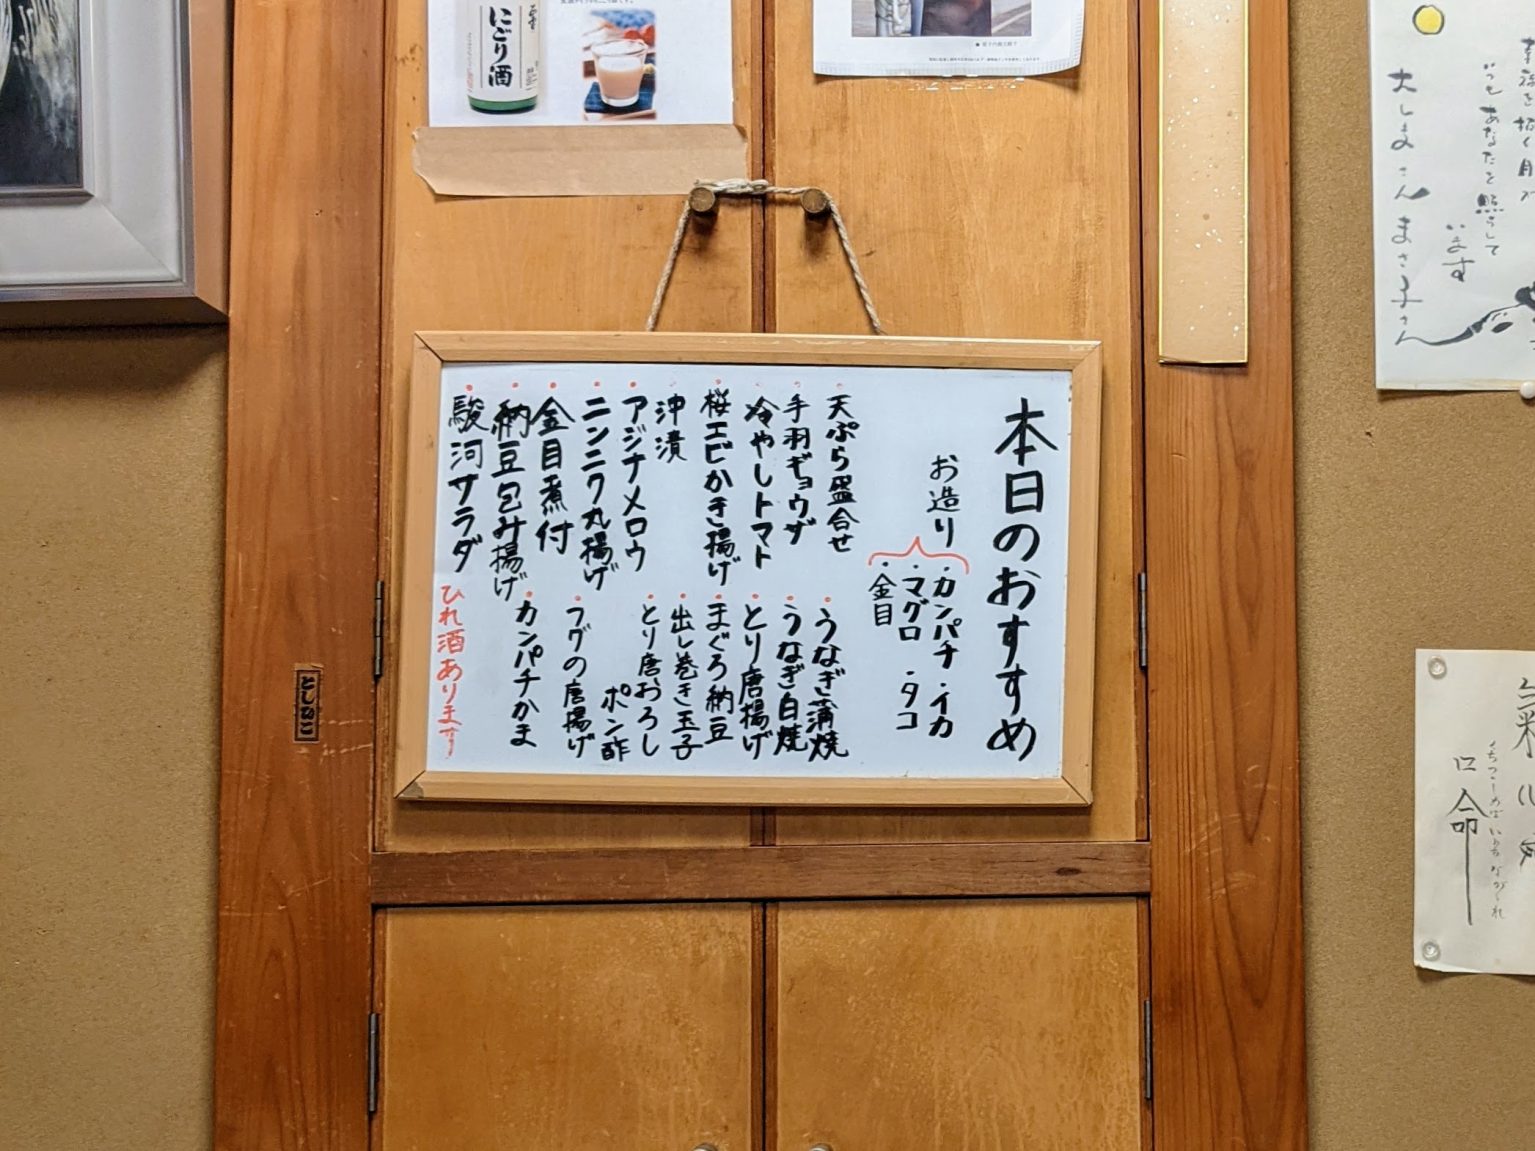 本日のおすすめ
お造り
・カンパチ・イカ
・マグロ・タコ
・金目
・天ぷら盛合せ
・手羽ギョウザ
・冷やしトマト
・桜エビかき揚げ
・沖漬
・アジナメロウ
・ニンニク丸揚げ
・金目煮付
・納豆包み揚げ
・駿河サラダ
・うなぎ蒲焼
・うなぎ白焼
・とり唐揚げ
・まぐろ納豆
・出し巻き玉子
・とり唐おろし
ポン酢
・フグの唐揚げ
・カンパチかま
ひれ酒あります
にごり酒
としなこ
いつもあなたを照らして
います
大しまさんまさ子さん
口命